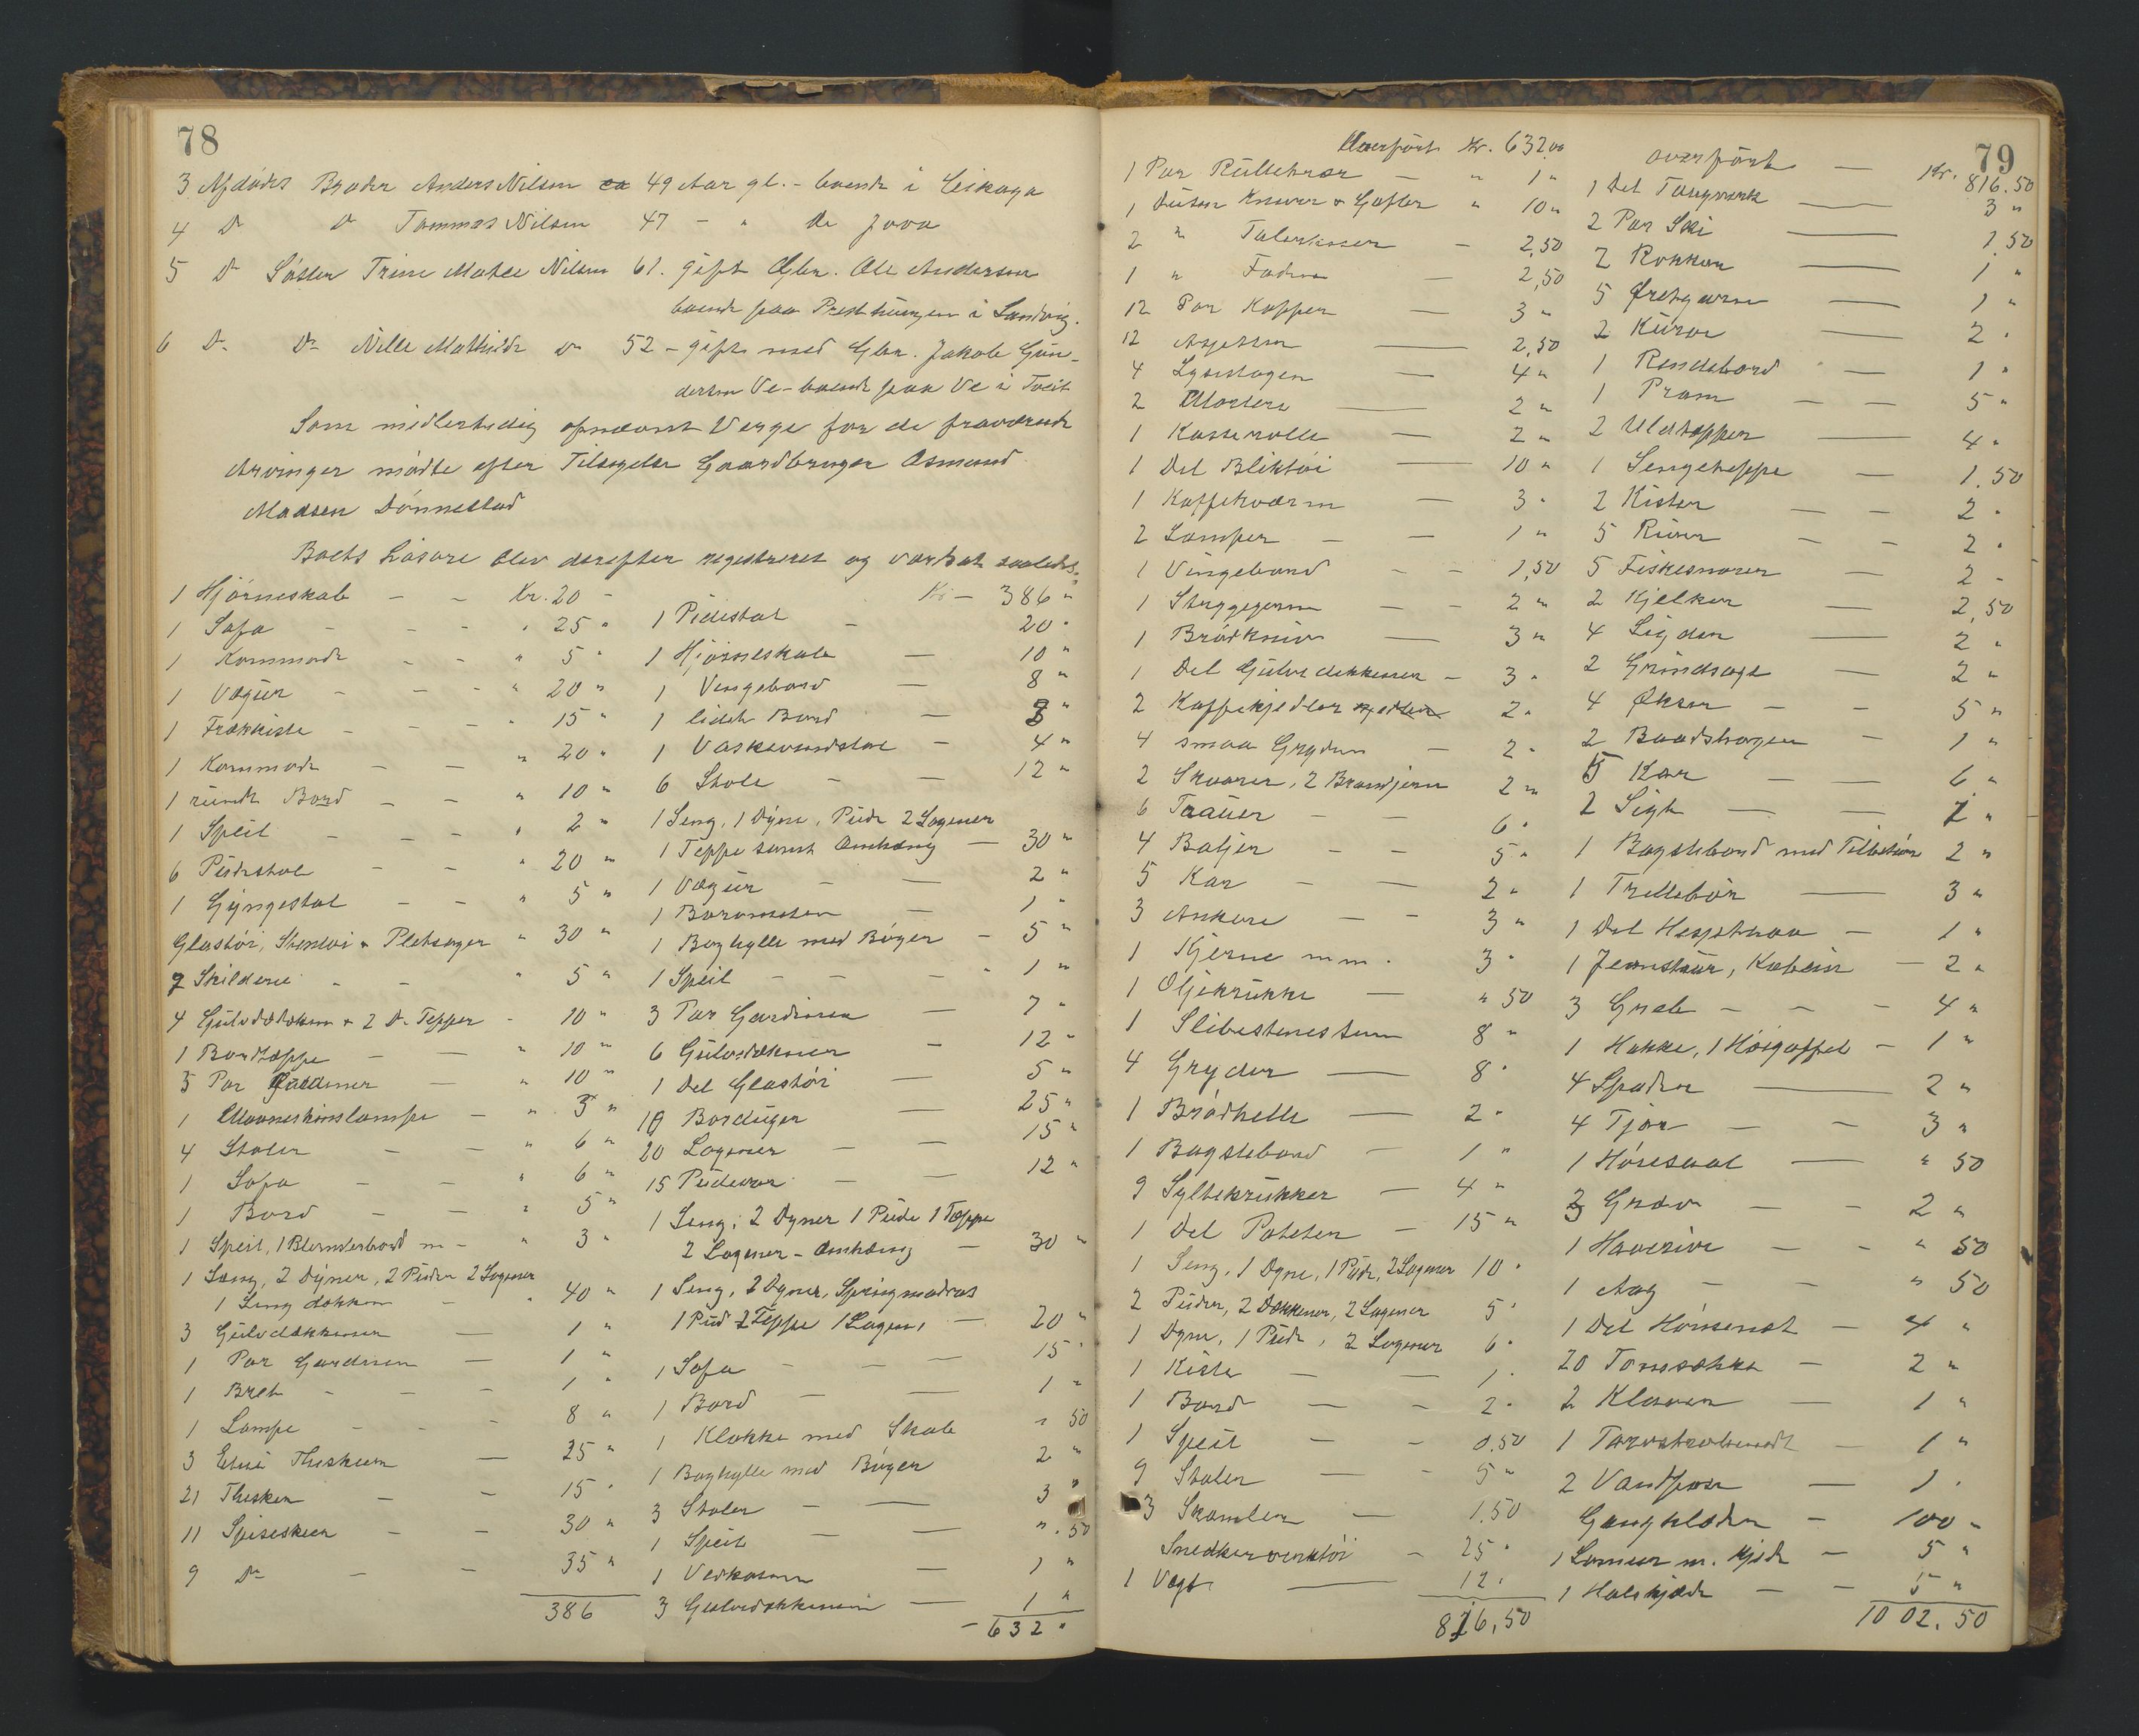 78
3 Afdødes Broder Anders Nilsen 49 Aar gl. - boende i
4 Do Do Tommas Nilsen 47 - " Do
5 Do Søster Trine Nilsen 61. gift Gbr. Ole Andersen
boende paa i Landvig.
6 Do Do Nille Mathilde Do 52 - gift med Gbr. Jakob Gun-
dersen Ve - boende paa Ve i Tveit
Som midlertidig opnævnt Verge for de fraværende
Arvinger mødte efter Tilsigelse Gaardbruger Osmund
Madsen Dønnestad
Boets Løsøre blev derefter registreret og værdsat saaledes:
1 Hjørneskab - - kr. 20 -
1 Sofa - - - " 25 "
1 Kommode - - " 5 "
1 Vægur - - - " 20 "
1 - - - " 15 "
1 Kommode - - " 20 "
1 rundt Bord - - " 10 "
1 Speil - - - " 2 "
6 - - " 20 "
1 Gyngestol - - " 5 "
Glastøi, Stentøi & Pletsager " 30 "
7 Skilderie - - " 5 "
4 Gulvdækken & 2 Do Tepper - 10 "
1 Bordtæppe - - " 10 "
5 Par Gardiner - " 10 "
1 Maaneskinslampe - " 3 "
4 Stoler - - " 6 "
1 Sofa - - " 6 "
1 Bord - - " 5 "
1 Speil, 1 m - " 3 "
1 Seng, 2 Dyner, 2 Puder 2 Lagener
1 Seng dækken - " 40 "
3 Gulvdækkener - 1 "
1 Par Gardinen - 1 "
1 Bret - - - 1 "
1 Lampe - - - 8 "
3 Theskeer - 25 "
21 Theskeer - - 15 "
11 Spiseskeer - - 30 "
9 Do - - 35 "
386
Kr - 386 "
1 Pidestal - 20 "
1 Hjørneskab - 10 "
1 Vingebord - 8 "
1 lidet Bord - 3 "
1 Vaskevandstol - 4 "
6 Stole - - 12 "
1 Seng, 1 Dyne, Pude 2 Lagener
1 Teppe samt Omhæng - 30 "
1 Vægur - - 2 "
1 Barometer - 1 "
1 Boghylle med Bøger - 5 "
1 Speil - - - " 1 "
3 Par Gardiner - 7 "
6 Gulvdækner - 12 "
1 Del Glastøi - 5 "
10 Borduger - 25 "
20 Lagener - - 15 "
15 Pudevar - - 12 "
1 Seng, 2 Dyner 1 Pude 1 Tæppe
2 Lagener - Omhæng - 30 "
1 Seng, 2 Dyner, Springmadras
1 Pud 2 Teppe 1 Lagen, - 20 "
1 Sofa - - - 15 "
1 Bord - - 1 "
1 Klokke med Skab " 50
1 Boghylle med Bøger 2 "
3 Stoler - - 3 "
1 Speil - - " . 50
1 Vedkasse - 1 "
3 Gulvdækkener - 1 "
- 632 "
79
Overført Kr. 632,00
1 Par - " 1 "
1 Dusin Kniver & Gafler " 10 "
2 " Talerkener - 2,50
1 " - 2,50
12 Par Kopper - 3 "
12 Asjetter - 2,50
4 Lysestagen - 4 "
2 Mortere - 2 "
1 Kasserolle - 2 "
1 Del Bliktøi - 10 "
1 Kaffekværn - 3 "
2 Lamper - - 1 "
1 Vingebord - - 1,50
1 Strygejern - - 2 "
1 Brødkniv - 3 "
1 Del Gulvdækkener - 3 "
2 Kaffekjedler 2 "
4 smaa Gryder - 2 "
2 Skaarer, 2 Brandjern 2 "
6 Trauer - - 6 "
4 Baljer - - 5 "
5 Kar - - 2 "
3 Ankere - - 3 "
1 Kjerne m.m. 3 "
1 Oljekrukke - " 50
1 Slibesten 8 "
4 Gryder - 8 "
1 Brødhelle - 2 "
1 Bagstebord - 1 "
9 Syltekrukker - 4 "
1 Del Poteter - 15 "
1 Seng, 1 Dyne, 1 Pude, 2 Lagener 10 "
2 Puder, 2 Dækkener, 2 Lagener 5 "
1 Dyne, 1 Pude, 2 Lagener 6 "
1 Kiste - - 1 "
1 Bord - - 2 "
1 Speil - - 0,50
9 Stoler - - 5 "
3 Skamler - 1.50
Snedkerverktøi - 25 "
1 Vægt - 12 "
816,50
overført - Kr. 816.50
1 Del Taugverk - 3 "
2 Par Ski - 1.50
2 Rokker - 1 "
5 Øretgarn - 1 "
2 Kurve - 2 "
1 Rendebord - 1 "
1 Pram - - 5 "
2 Uldtepper - 4 "
1 Sengeteppe - 1.50
2 Kister - - 2 "
5 River - - 2 "
5 Fiskesnører - 2 -
2 Kjelker - 2,50
4 Ligden - 2 "
2 Grindsage - 2 "
4 Økser - - 5 "
2 Baadshagen - 1 "
5 Kar - - 6 "
2 Sigt - - 1 "
1 Bagstebord med Tilbehør 2 "
1 Trillebør - 3 "
1 Del Hesjetraa - 1 "
1 Jernstaur, Kubein - 2 "
3 Greb - - - 4 "
1 Hakke, 1 Høigaffel - 1 "
4 Spader - 2 "
4 Tjor - - 3 "
1 - " 50
3 Græv - - 2 "
1 Haverive - - " 50
1 Aag - - " 50
1 Del Hønsenet - 4 "
20 Tomsække - 2 "
2 Klaver - 1 "
1 - 1 "
2 Vandspan 1 "
Gangklæder - 100 -
1 m. Kjede - 5 "
1 Halskjæde - - 5 "
1002.50